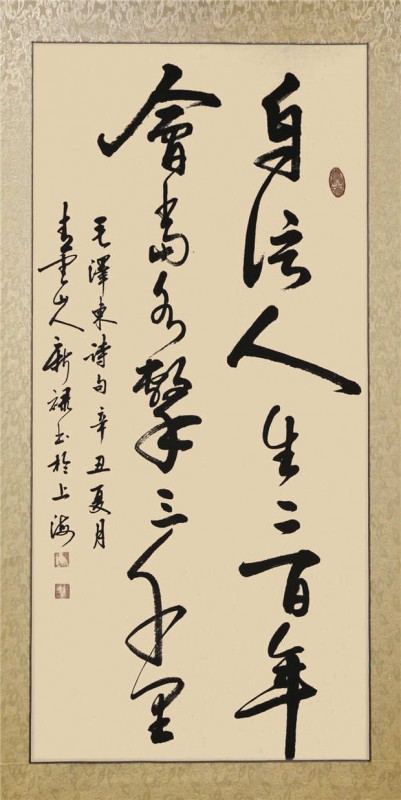 身信人生二百年
會當水擊三千里
毛澤東詩句辛丑夏月
青雲山人新禄书於上海